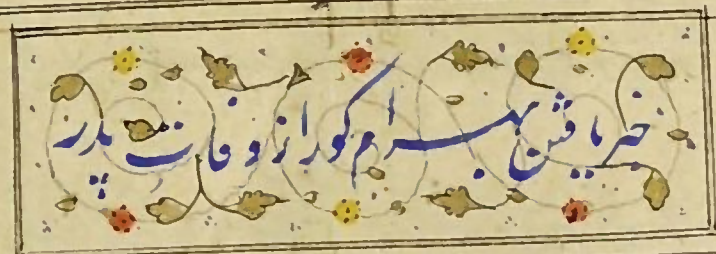 خبر یافتن بهرام کور از وفات پدر